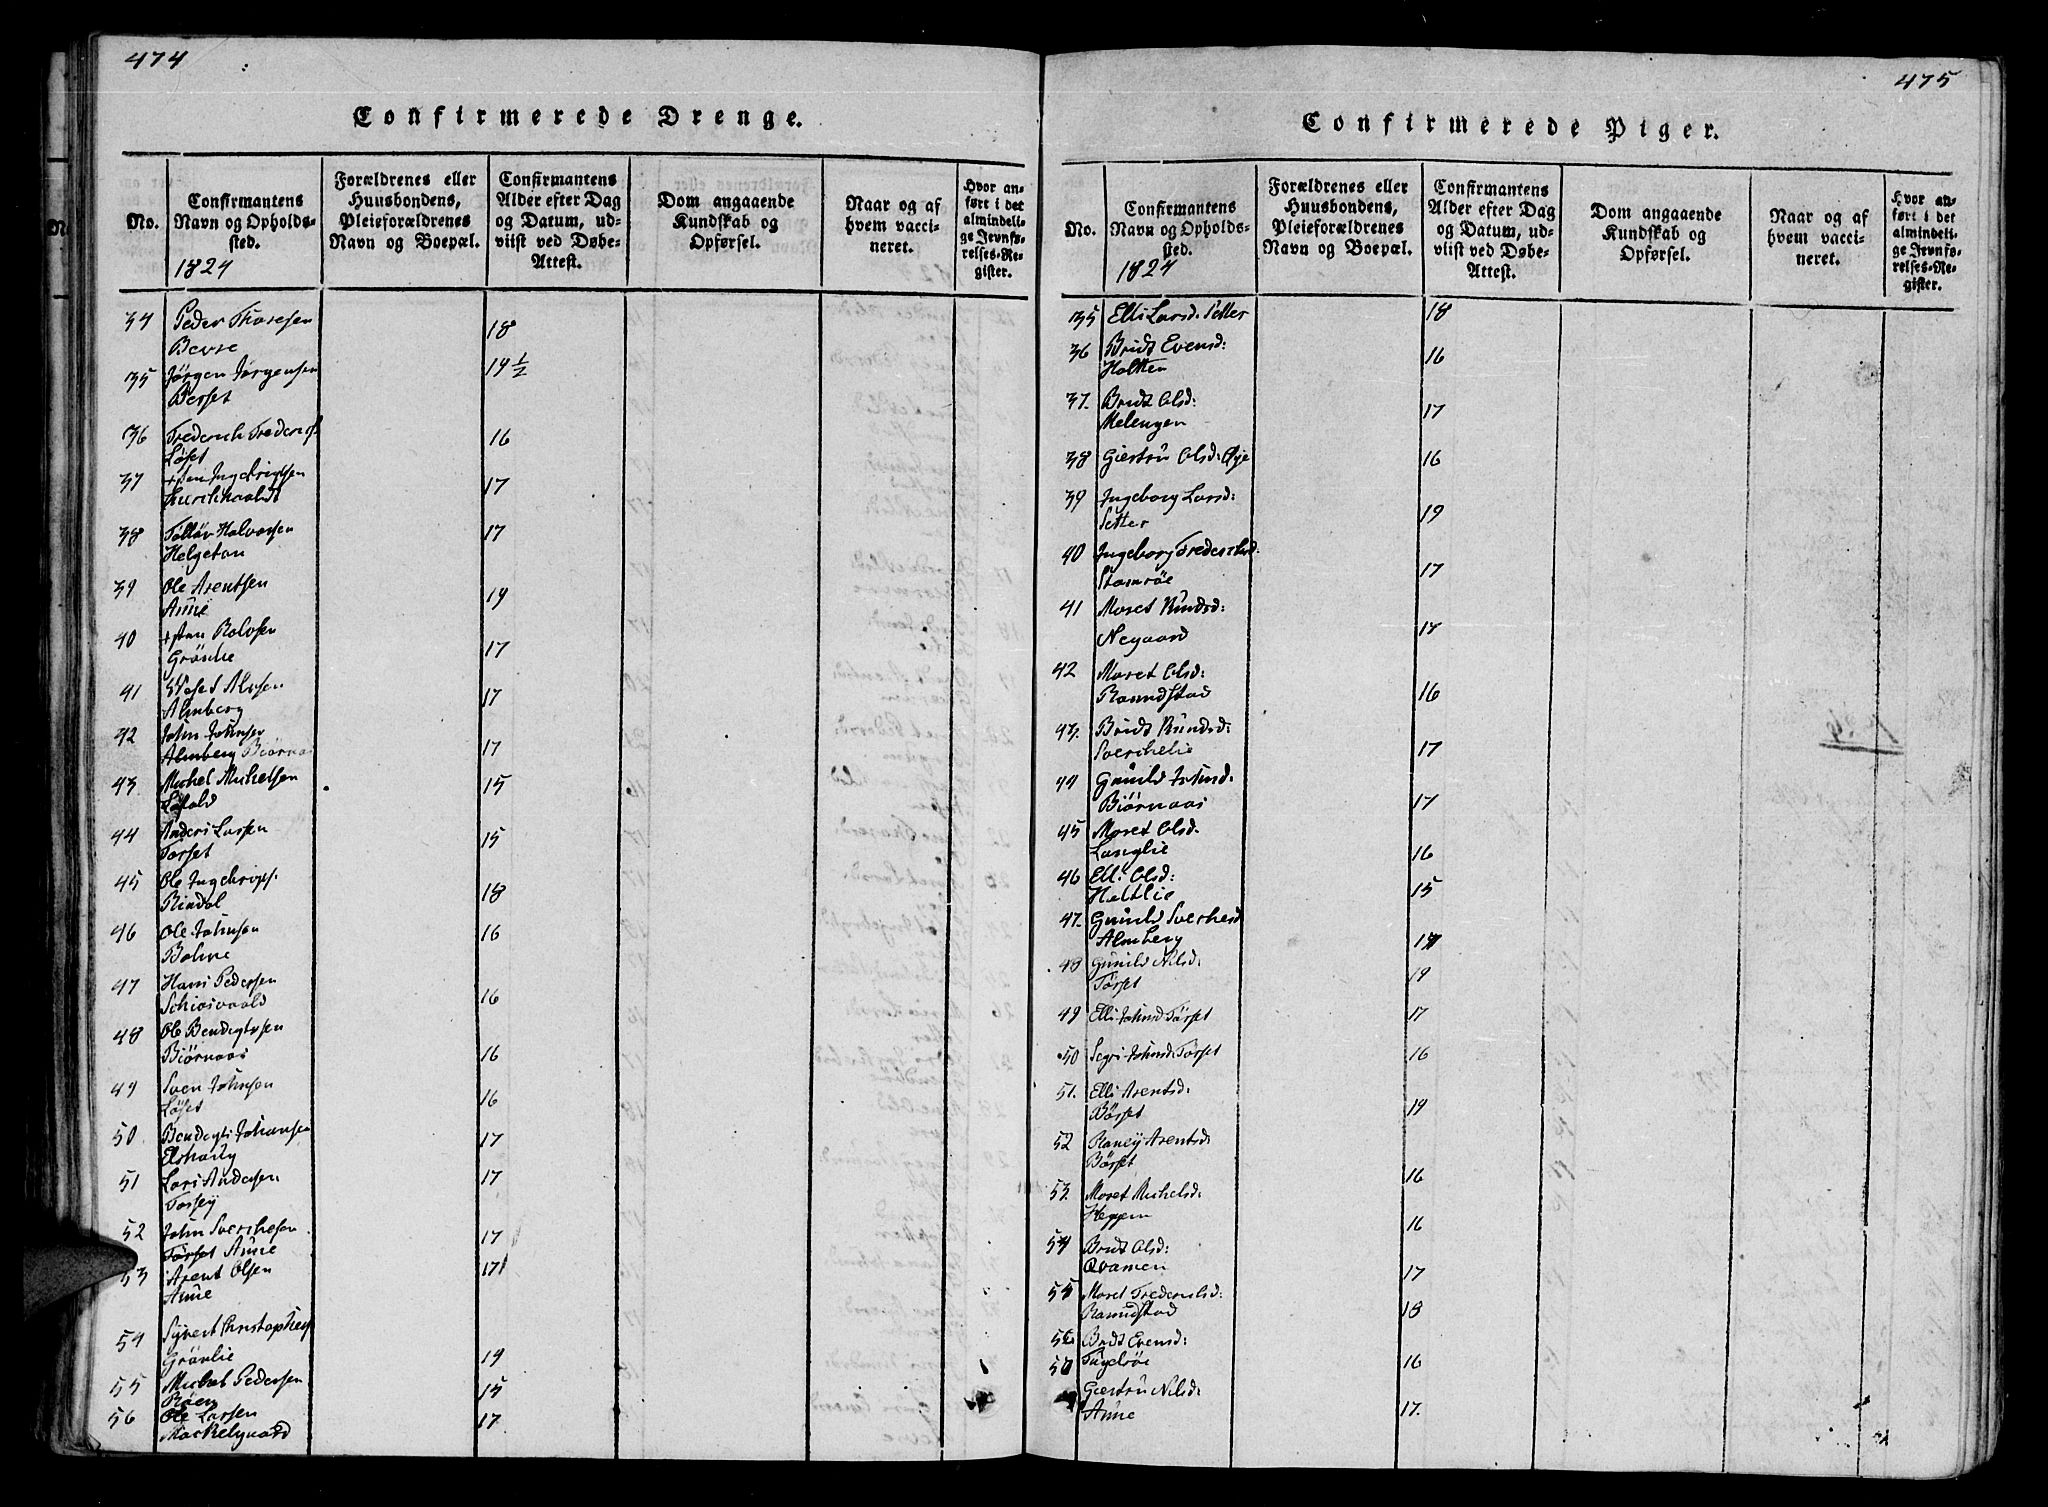 474
Confirmerede Drenge.
No.
Confirmantens Navn og Opholdssted.
1824
Forældrenes eller Huusbondens, Pleieforældrenes Navn og Boepæl.
Confirmantens Alder efter Dag og Datum, udviist ved Døbe-Attest.
Dom angaaende Kundskab og Opførsel.
Naar og af hvem vaccineret.
Hvor anført i det almindelige Jevnførelses-Register.
34 Peder Thoresen
Bevre 18
35 Jørgen Jørgensen 14 1/2
Berset
36 Frederich Frederichs 16
Løset
37 Ingebrigtsen 17
38 Halvorsen 17
Helgetun
39 Ole Arentsen 19
Aune
40 Rolvsen 17
Grönlie
41 Alvsen 17
Almberg
42 John Johnsen
Almberg Biörnaas 17
43 Michel Michelsen 15
44 Anders Larsen 15
Torset
45 Ole Ingebrigts:
Rindal 18
46 Ole Johnsen 16
Bolme
47 Hans Pedersen
16
48 Ole Bendigtsen
Biörnaas 16
49 Sven Johnsen
Löset 16
50 Bendigt Johansen 17
51 Lars Andersen 17
52 John Sverchesen 17
Törset Aune
53 Arent Olsen 17
Aune
54 Syvert Christophers
Grönlie 19
55 Michel Pedersen 15
Röen
56 Ole Larsen 17
475
Confirmerede Piger.
No.
Confirmantens Navn og Opholdssted.
1824
Forældrenes eller Huusbondens, Pleieforældrenes Navn og Boepæl.
Confirmantens Alder efter Dag og Datum, udviist ved Døbe-Attest.
Dom angaaende Kundskab og Opførsel.
Naar og af hvem vaccineret.
Hvor anført i det almindelige Jevnførelses-Register.
35 Elli Larsd: Setter 18
36 Bridt Evensd: 16
Holten
37. Bridt Olsd: 17
Melengen
38 Giertru Olsd: Øye 16
39 Ingeborg Larsd: 19
Setter
40 Ingeborg Frederichsd: 17
Stomröe
41 Maret Knudsd:
Negaard
42 Maret Olsd:
Raundstad 16
43. Bridt Knudsd:
Sverchelie 17
44 Gunild Johnsd:
Biörnaas 17
45 Maret Olsd.
Langlie 16
46 Elli Olsd: 15
Heltlie
47. Gunild Sverchesd
Almberg
48 Gunild Nilsd: 19
Törset
49 Elli Johnsd Törset 17
50 Segri Johnsd Törset 16
51. Elli Arentsd: 19
Börset
52 Raney Arentsd:
Börset 16
53. Maret Michelsd:
Heggem 16
54 Bridt Olsd:
Qvamen 17
55 Maret Frederichsd:
Raundstad 18
56 Bridt Evensd: 16
Giertru Nilsd:
Aune 17.